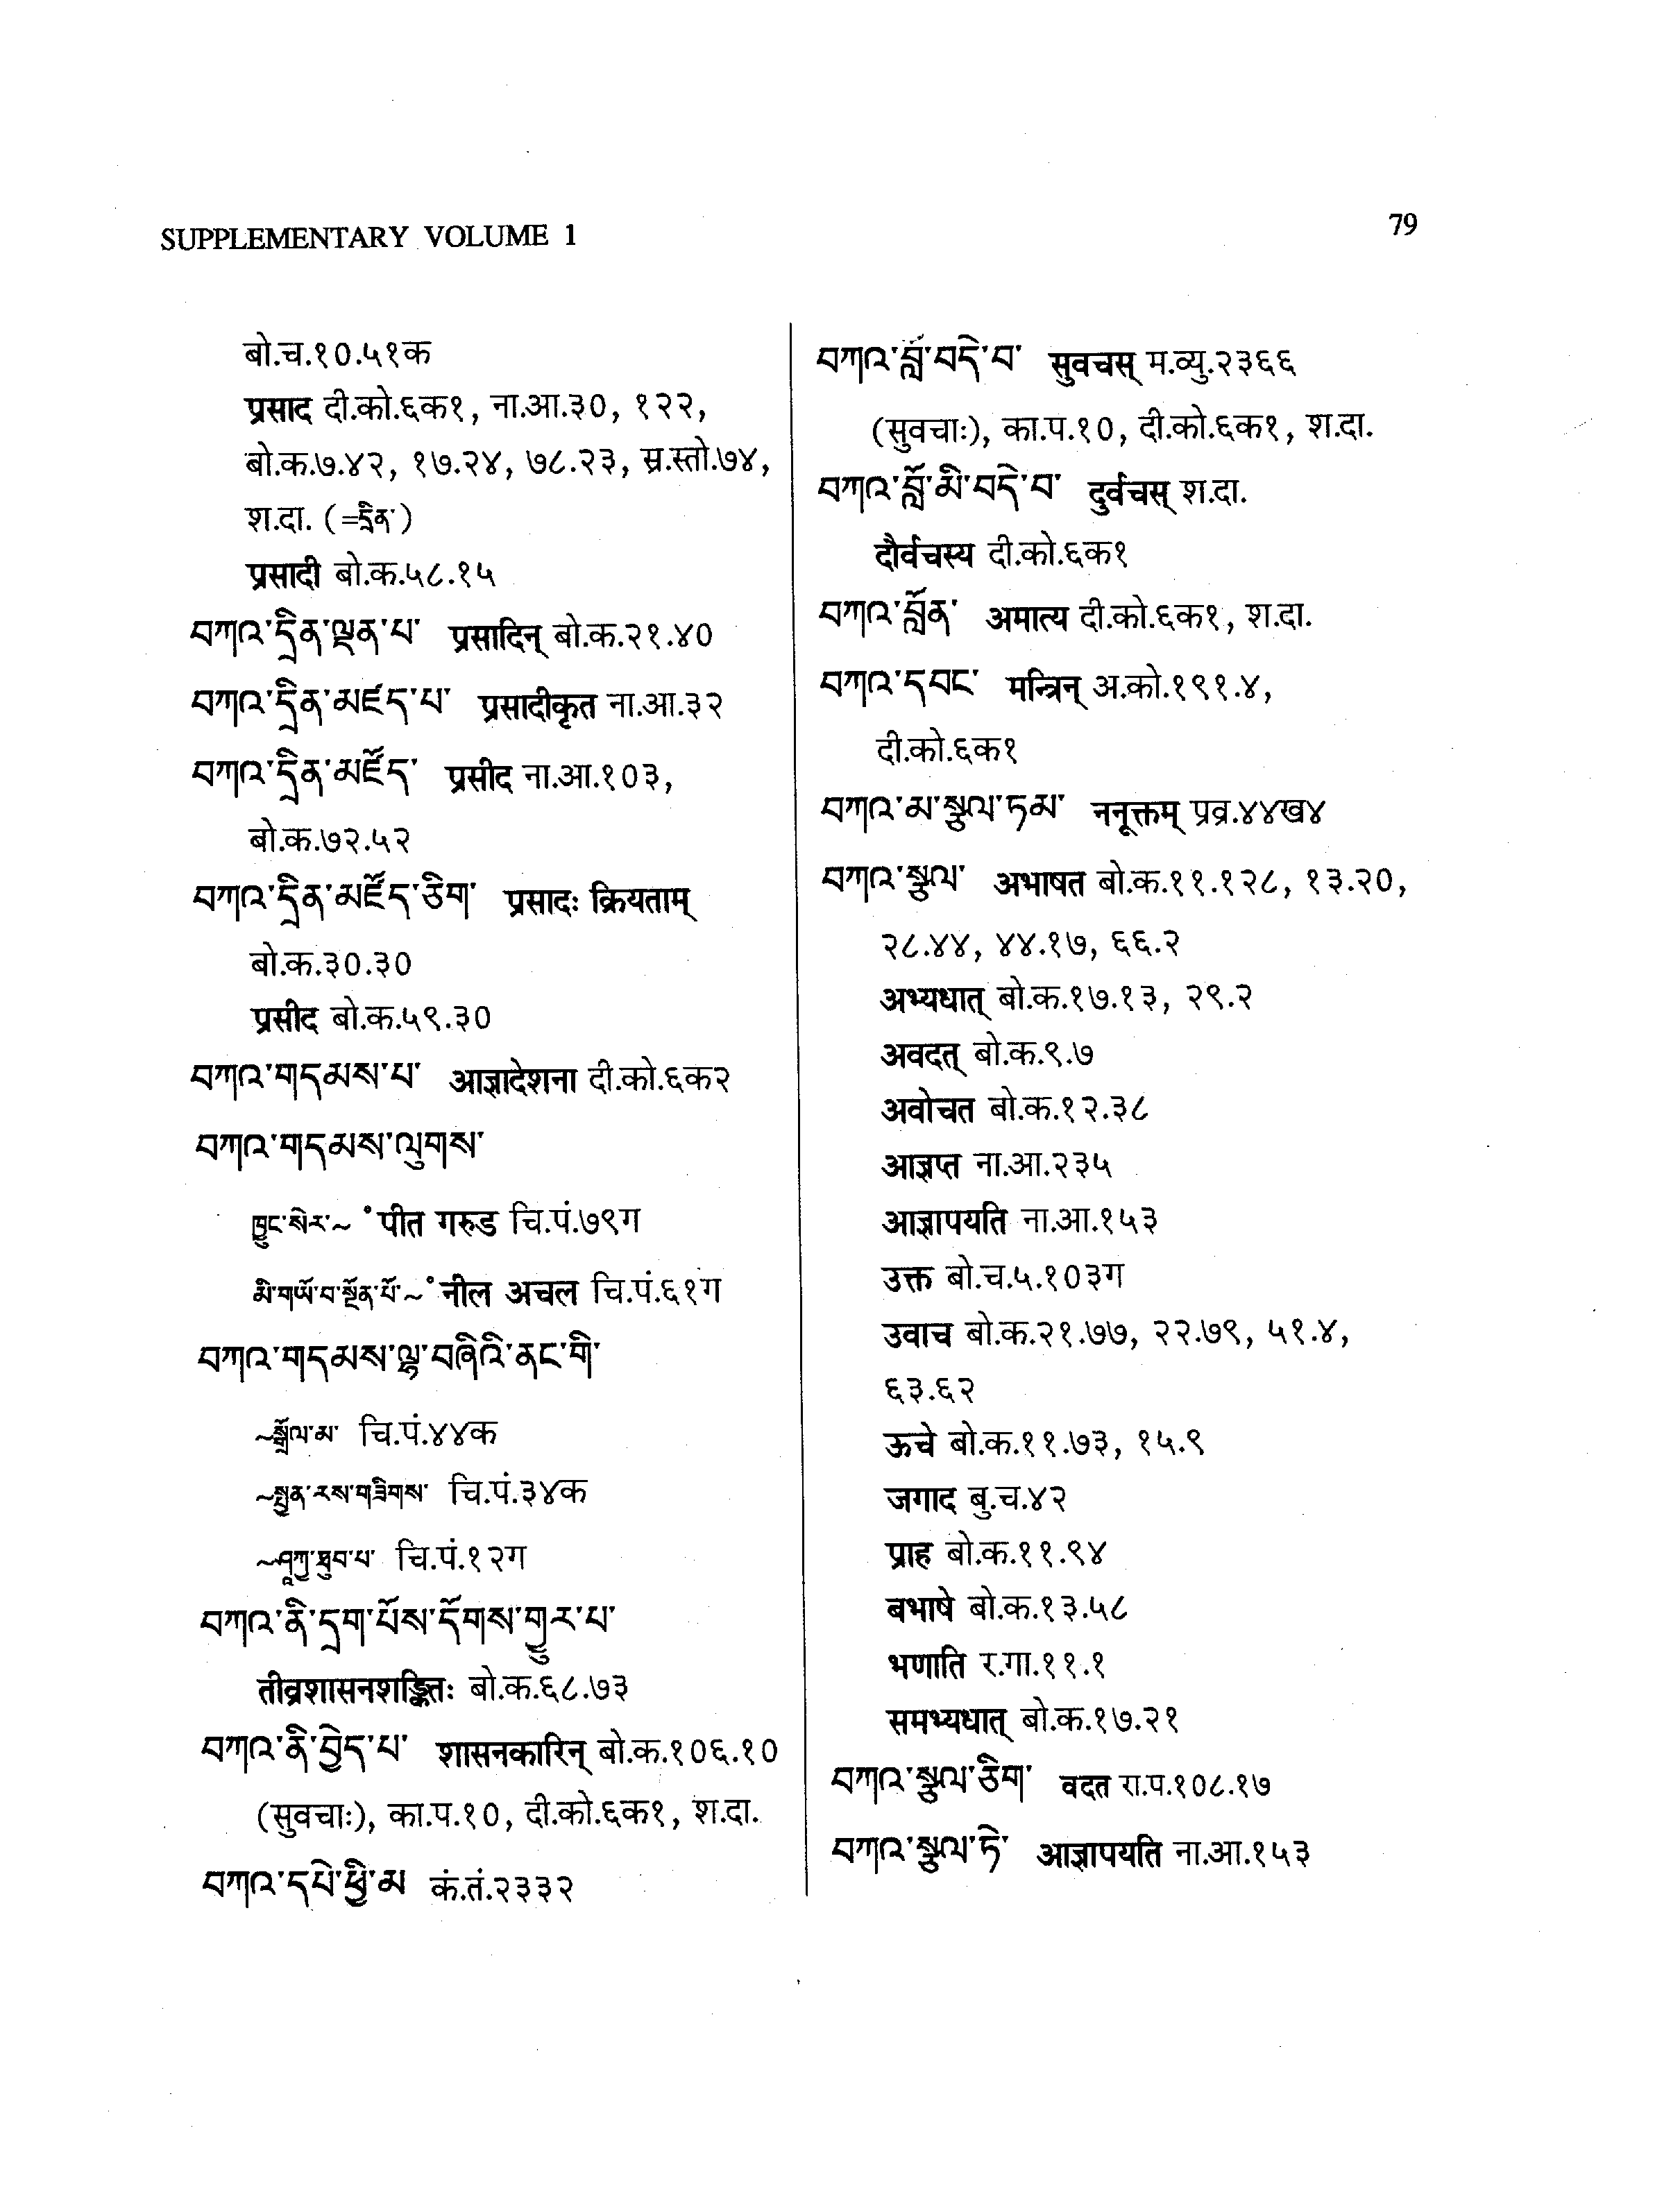 SUPPLEMENTARY VOLUME 1
79
बो.च.१०.५१क
प्रसाद दी.को.६क१, ना.आ.३०, १२२,
बो.क.७.४२, १७.२४, ७८.२३, स्र.स्तो.७४,
श.दा. (=དྲིན་)
प्रसादी बो.क.५८.१५
བཀའ་དྲིན་ལྡན་པ་ प्रसादिन् बो.क.२१.४०
བཀའ་དྲིན་མཛད་པ་ प्रसादीकृत ना.आ.३२
བཀའ་དྲིན་མཛོད་ प्रसीद ना.आ.१०३,
बो.क.७२.५२
བཀའ་དྲིན་མཛོད་ཅིག་ प्रसादः क्रियताम्
बो.क.३०.३०
प्रसीद बो.क.५९.३०
བཀའ་གདམས་པ་ आज्ञादेशना दी.को.६क२
བཀའ་གདམས་ལུགས་
ཁྱུང་སེར་~ ॰पीत गरुड चि.पं.७९ग
མི་གཡོ་བ་སྔོན་པོ་~॰नील अचल चि.पं.६१ग
བཀའ་གདམས་ལྷ་བཞིའི་ནང་གི་
~སྒྲོལ་མ་ चि.पं.४४क
~སྤྱན་རས་གཟིགས་ चि.पं.३४क
~ཤཱཀྱ་ཐུབ་པ་ चि.पं.१२ग
བཀའ་ནི་དྲག་པོས་དོགས་གྱུར་པ་
तीव्रशासनशङ्कितः बो.क.६८.७३
བཀའ་ནི་བྱེད་པ་ शासनकारिन् बो.क.१०६.१०
(सुवचाः), का.प.१०, दी.को.६क१, श.दा.
བཀའ་དཔེ་ཕྱི་མ कं.तं.२३३२
བཀའ་བློ་བདེ་བ་ सुवचस् म.व्यु.२३६६
(सुवचाः), का.प.१०, दी.को.६क१, श.दा.
བཀའ་བློ་མི་བདེ་བ་ दुर्वचस् श.दा.
दौर्वचस्य दी.को.६क१
བཀའ་བློན་ अमात्य दी.को.६क१, श.दा.
བཀའ་དབང་ मन्त्रिन् अ.को.१९१.४,
दी.को.६क१
བཀའ་མ་སྩལ་ཏམ་ ननूक्तम् प्रव्र.४४ख४
བཀའ་སྩལ་ अभाषत बो.क.११.१२८, १३.२०,
२८.४४, ४४.१७, ६६.२
अभ्यधात् बो.क.१७.१३, २९.२
अवदत् बो.क.९.७
अवोचत बो.क.१२.३८
आज्ञप्त ना.आ.२३५
आज्ञापयति ना.आ.१५३
उक्त बो.च.५.१०३ग
उवाच बो.क.२१.७७, २२.७९, ५१.४,
६३.६२
ऊचे बो.क.११.७३, १५.९
जगाद बु.च.४२
प्राह बो.क.११.९४
बभाषे बो.क.१३.५८
भणाति र.गा.११.१
समभ्यधात् बो.क.१७.२१
བཀའ་སྩལ་ཅིག་ वदत रा.प.१०८.१७
བཀའ་སྩལ་ཏེ་ आज्ञापयति ना.आ.१५३